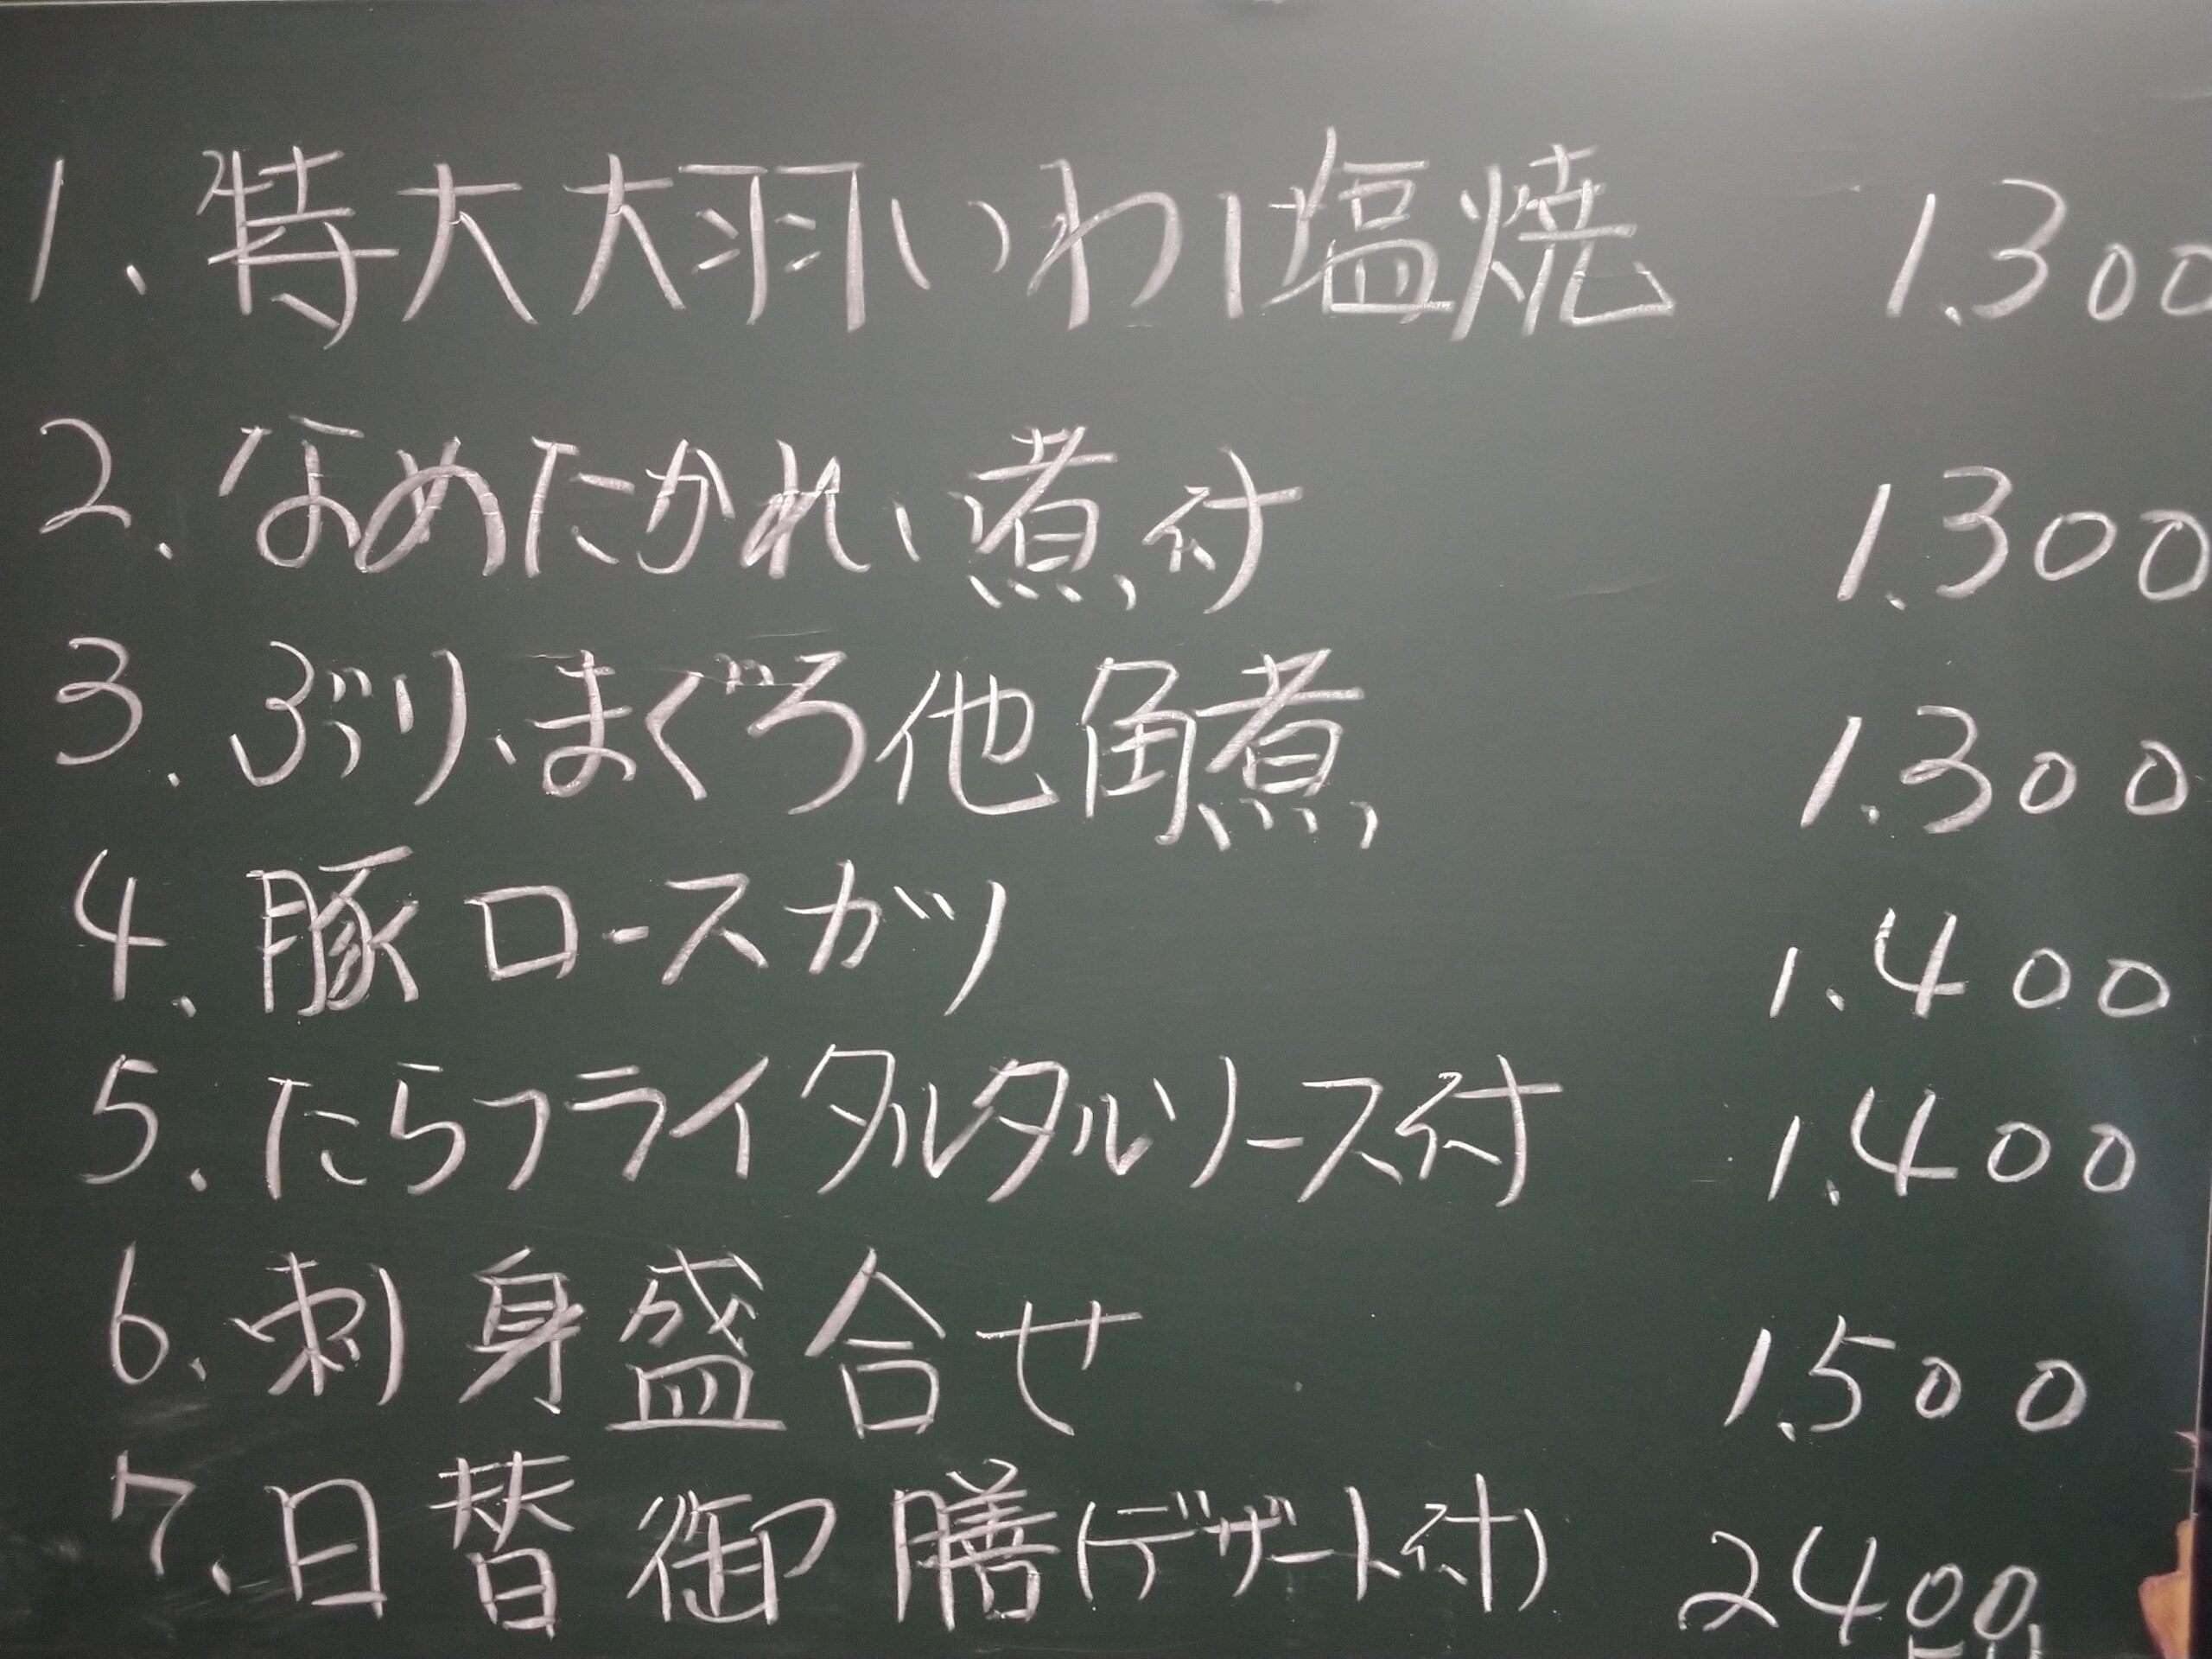 1、特大大羽いわし塩焼 1.300
2、なめたかれい煮付 1.300
3、ぶり、まぐろ他角煮 1.300
4、豚ロースカツ 1.400
5、たらフライタルタルソース付 1.400
6、刺身盛合せ 1.500
7、日替御膳(デザート付) 2400